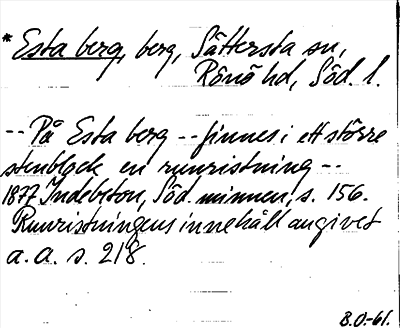 *Esta berg, berg, Sättersta sn,
Rönö hd, Söd. l.
-- På Esta berg -- finnes i ett större
stenblock en runristning --
1877 Indebetou, Söd. minnen, s. 156.
Runristningens innehåll angivet
a. a. s. 218.
B.O.-61.